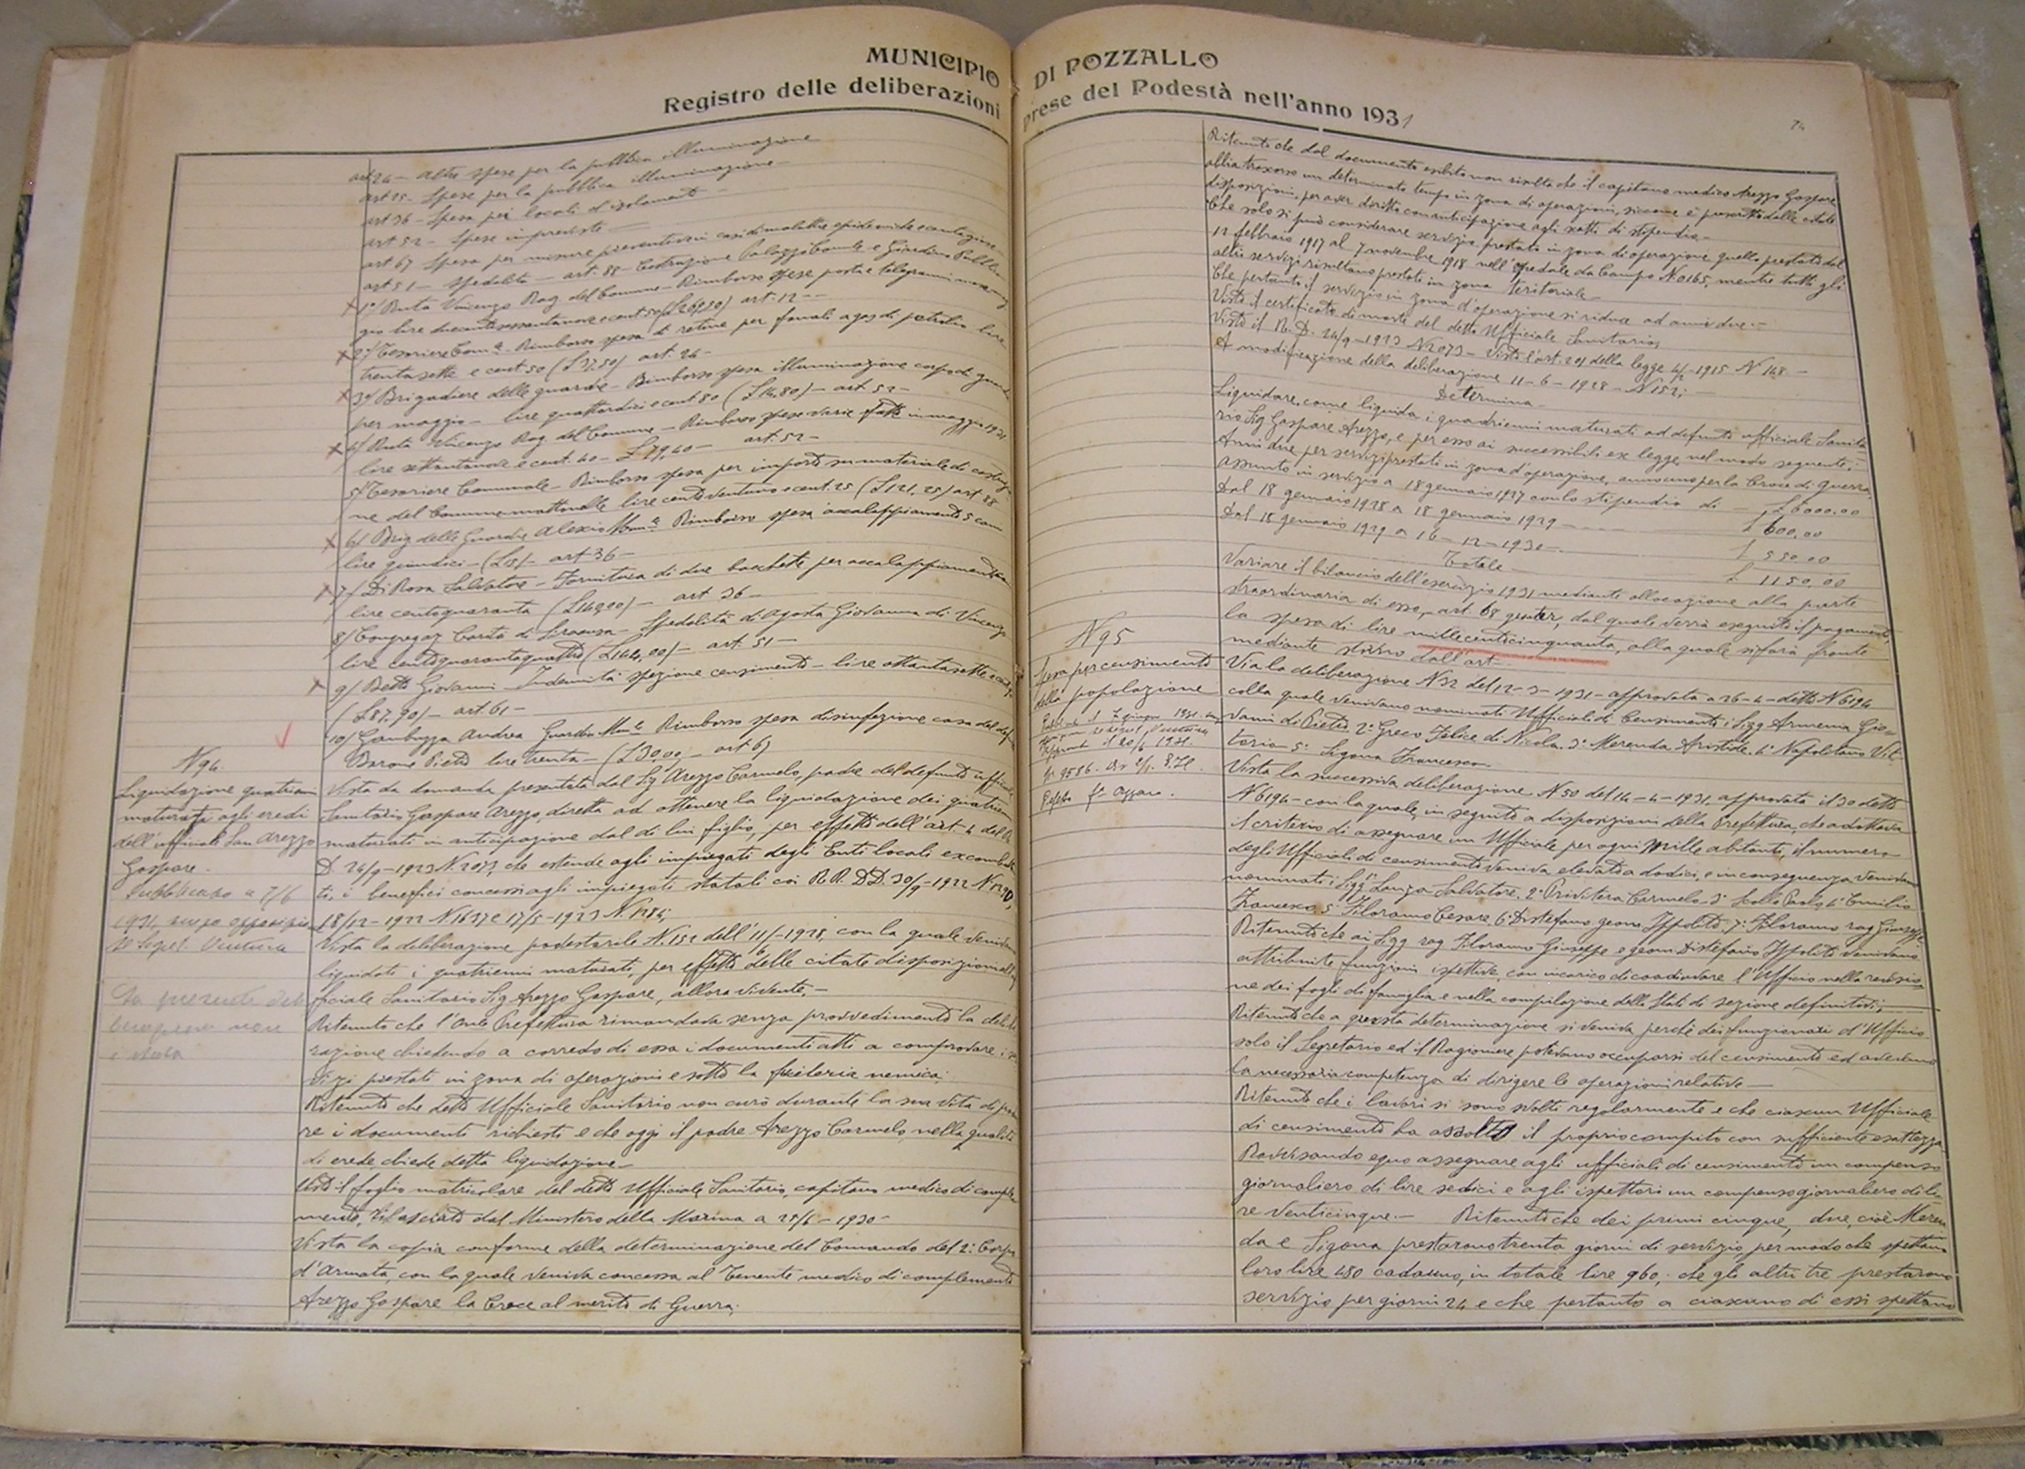 MUNICIPIO DI POZZALLO
Registro delle deliberazioni prese del Podestà nell'anno 1931
74
art 24 - altre spese per la pubblica illuminazione
art 25 - Spese per la pubblica illuminazione
art 36 - Spesa pei locali d'isolamento
art 52 - Spese impreviste
art 67 Spesa per misure preventive in casi di malattie epidemiche e contagiose
art 51 - Spedalità - art. 88 Costruzione Palazzo Comle e Giardino Pubblico
1°/ Ruta Vincenzo Rag. del Comune - Rimborso spese posta e telegrammi
gio lire duecentosessantanove e cent 50 (£ 269,50) art. 12 -
2°/ Tesoriere Comle - Rimborso spesa di retine per fanali a gas di petrolio lire
trentasette e cent 50 (£ 37,50) art. 24 -
3°/ Brigadiere delle guardie - Rimborso spesa illuminazione corpo di guardia
per maggio - lire quattordici e cent 80 (£ 14,80) - art. 52 -
4/ Ruta Vincenzo Rag. del Comune - Rimborso spese varie fatte in maggio 1931
lire settantanove e cent. 40 - £ 79,40 - art. 52 -
5/ Tesoriere Comunale - Rimborso spesa per importo su materiale di costruzio
ne del Comune mattonelle lire centoventuno e cent. 25 (£ 121,25) art 88
6/ Brig delle Guardie Alexio Rimborso spesa accalappiamento 5 cani
lire quindici - (£ 15) - art 36 -
7/ Di Rosa Salvatore - Fornitura di due per accalappiamento
lire centoquaranta (£ 140,00) - art 36 -
8/ Congregaz Carità di Siracusa - Spedalità di Agosta Giovanna di Vincenzo
lire centoquarantaquattro (£ 144,00) - art. 51 -
9/ Giovanni - Indennità ispezione censimento - lire ottantasette e cent 90
(£ 87,90) - art. 61 -
10/ Gambuzza Andrea Guardia Mle Rimborso spesa disinfezione casa del
Barone Pietro lire trenta - (£ 30,00) - art 67
N 94
Liquidazione quadrienni
maturati agli eredi
dell'ufficiale San. Arezzo
Gaspare.
Pubblicato a 7/6
1931 senza opposizioni
Il Segret. Ventura
La presente deli
berazione non
è
Vista la domanda presentata dal Sig Arezzo Carmelo, padre del defunto ufficiale
Sanitario Gaspare Arezzo, diretta ad ottenere la liquidazione dei quadrienni
maturati in anticipazione dal di lui figlio, per effetto dell'art. 4 del R.
D 24/9-1923 N. 2073, che estende agli impiegati degli Enti locali ex combatten
ti, i benefici concessi agli impiegati statali coi R.R. D.D. 30/9-1922 N 1290,
18/12-1922 N 1637 e 17/5-1923 N. 1284;
Vista la deliberazione podestarile N. 152 dell'11/6-1928, con la quale venivano
liquidati i quadrienni maturati, per effetto delle citate disposizioni all'uf
ficiale Sanitario Sig Arezzo Gaspare, allora vivente, -
Ritenuto che l'On.le Prefettura rimandava senza provvedimento la delibe
razione chiedendo a corredo di essa i documenti atti a comprovare i ser
vizi prestati in zona di operazioni e sotto la fucileria nemica;
Ritenuto che detto Ufficiale Sanitario non curò durante la sua vita di produr
re i documenti richiesti e che oggi il padre Arezzo Carmelo, nella qualità
di erede, chiede detta liquidazione -
Visto il foglio matricolare del detto Ufficiale Sanitario, capitano medico di comple
mento, rilasciato dal Ministero della Marina a 25/6-1930 -
Vista la copia conforme della determinazione del Comando del 2° Corpo
d'Armata, con la quale veniva concessa al Tenente medico di complemento
Arezzo Gaspare la Croce al merito di Guerra;
Ritenuto che dal documento esibito non risulta che il capitano medico Arezzo Gaspare
abbia trascorso un determinato tempo in zona di operazioni, siccome è prescritto dalle citate
disposizioni, per aver diritto con anticipazione agli scatti di stipendio -
Che solo si può considerare servizio prestato in zona di operazione quello prestato dal
12 febbraio 1917 al 7 novembre 1918 nell'Ospedale da Campo N 0165, mentre tutti gli
altri servizi risultano prestati in zona territoriale -
Che pertanto il servizio in zona d'operazione si riduce ad anni due -
Visto il certificato di morte del detto Ufficiale Sanitario;
Visto il R. D. 24/9-1923 N 2073 - Visto l'art. 201 della legge 4/2-1915 N 148 -
A modificazione della deliberazione 11-6-1928 - N 152;
Determina
Liquidare, come liquida, i quadrienni maturati al defunto ufficiale Sanita
rio Sig Gaspare Arezzo, e per esso ai successibili ex legge, nel modo seguente:
Anni due per servizi prestati in zona d'operazione, anno uno per la Croce di Guerra,
assunto in servizio a 18 gennaio 1927 con lo stipendio di - £ 6000.00
Dal 18 gennaio 1928 a 18 gennaio 1929 - £ 600,00
Dal 18 gennaio 1929 a 16-12-1930 - £ 550.00
Totale £ 1150,00
Variare il bilancio dell'esercizio 1931 mediante allocazione alla parte
straordinaria di esso, art. 68 quater, dal quale verrà eseguito il pagamento
la spesa di lire millecentocinquanta, alla quale si farà fronte
mediante storno dall'art
N 95
Spesa per censimento
della popolazione
Pubbl. il 7 giugno 1931 senza
Il Segret. Ventura
il 20/6 1931.
N 9586.
Prefetto f.to
Vista la deliberazione N 32 del 12-3-1931 - approvata a 26-4- detto N 6194
colla quale venivano nominati Ufficiali di Censimento i Sigg Armenia Gio=
vanni di Pietro 2° Greco Felice di Nicola 3° Merenda Aristide 4° Napolitano Vit=
torio 5° Sigona Francesco -
Vista la successiva deliberazione N 50 del 14-4-1931 approvata il 30 detto
N 6194 - con la quale, in seguito a disposizioni della Prefettura, che adottava
il criterio di assegnare un Ufficiale per ogni mille abitanti, il numero
degli Ufficiali di censimento veniva elevato a dodici, e in conseguenza venivano
nominati i Sigg 1° Lanza Salvatore, 2° Privitera Carmelo 3° Paolo, 4° Emilio
Francesco 5° Floramo Cesare 6° Distefano geom Ippolito 7° Floramo rag Giuseppe
Ritenuto che ai Sigg rag Floramo Giuseppe e geom Distefano Ippolito venivano
attribuite funzioni ispettive, con incarico di coadiuvare l'Ufficio nella revisio
ne dei fogli di famiglia e nella compilazione dello Stati di sezione definitivi;
Ritenuto che a questa determinazione si veniva perchè dei funzionari d'Ufficio
solo il Segretario ed il Ragioniere potevano occuparsi del censimento ed avevano
la necessaria competenza di dirigere le operazioni relative -
Ritenuto che i lavori si sono svolti regolarmente e che ciascun Ufficiale
di censimento ha assolto il proprio compito con sufficiente esattezza
Ravvisando equo assegnare agli ufficiali di censimento un compenso
giornaliero di lire sedici e agli ispettori un compenso giornaliero di li=
re venticinque. - Ritenuto che dei primi cinque, due, cioè Meren
da e Sigona prestarono trenta giorni di servizio, per modo che spettano
loro lire 480 cadauno, in totale lire 960; che gli altri tre prestarono
servizio per giorni 24 e che pertanto a ciascuno di essi spettano